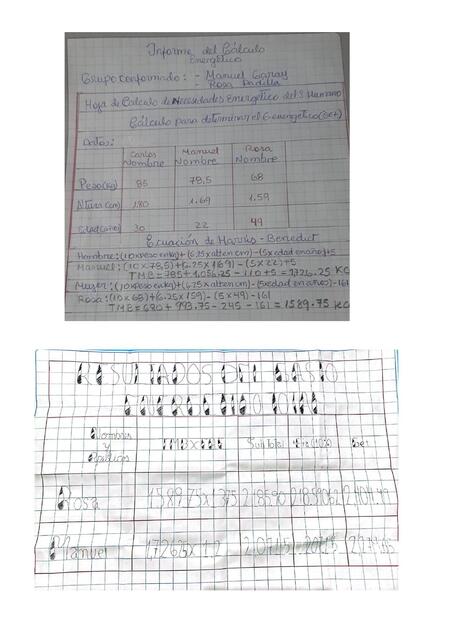 Informe del Cálculo
Energético
Grupo conformado: - Manuel Garay
- Rosa Padilla
Hoja de Calculo de Necesidades Energético del S. Humano
Cálculo para determinar el G energetico (Get)
Datos:
Carlos Nombre Manuel Nombre Rosa Nombre
Peso(kg) 85 78.5 68
Altura (cm) 1.80 1.69 1.59
Edad(año) 30 22 49
Ecuación de Harris - Benedict
Hombre: (10xpeso en kg)+(6.25xalt en cm)-(5xedad en año)+5
Manuel: (10x78,5)+(6.25x169)-(5x22)+5
TMB=785+1,056.25-110+5=1726.25 KC
Mujer: (10xpeso en kg)+(6.25xalt en cm)-(5xedad en años)-161
Rosa: (10x68)+(6.25x159)-(5x49)-161
TMB=680+993.75-245-161=1589.75 KC
RESULTADOS DEL GASTO
ENERGETICO TOTAL
Nombres y Sub total Get
Rosa 1589.75x1.375
Manuel 1,726.25x1.2